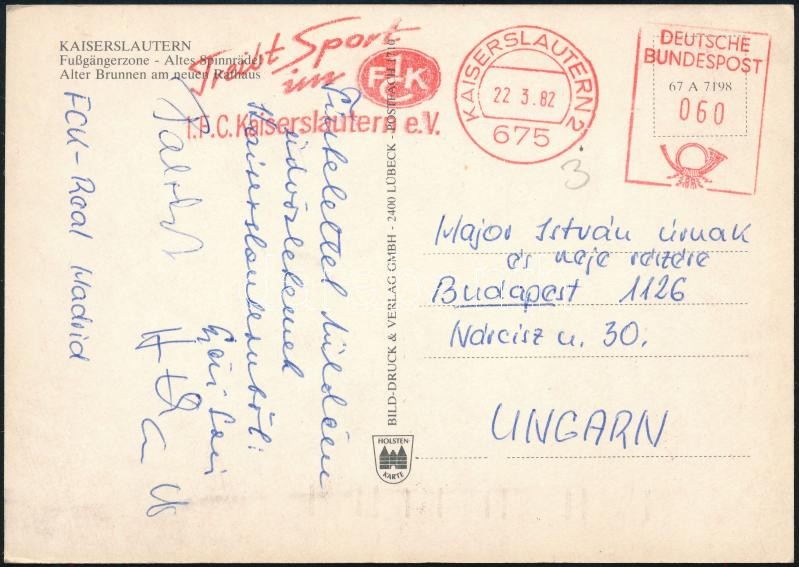 KAISERSLAUTERN
Fußgängerzone - Altes Spinnrädel
Alter Brunnen am neuen Rathaus
Treibt Sport
im
1
FCK
1. F.C. Kaiserslautern e.V.
KAISERSLAUTERN 2
22.3.82
675
DEUTSCHE
BUNDESPOST
67 A 7198
060
3
FCK - Real Madrid
Tisztelettel küldöm
üdvözletemet
Kaiserslauternből:
BILD-DRUCK & VERLAG GMBH - 2400 LÜBECK - POSTFACH 1710
HOLSTEN-
KARTE
Major István úrnak
és neje részére
Budapest 1126
Nárcisz u. 30.
UNGARN